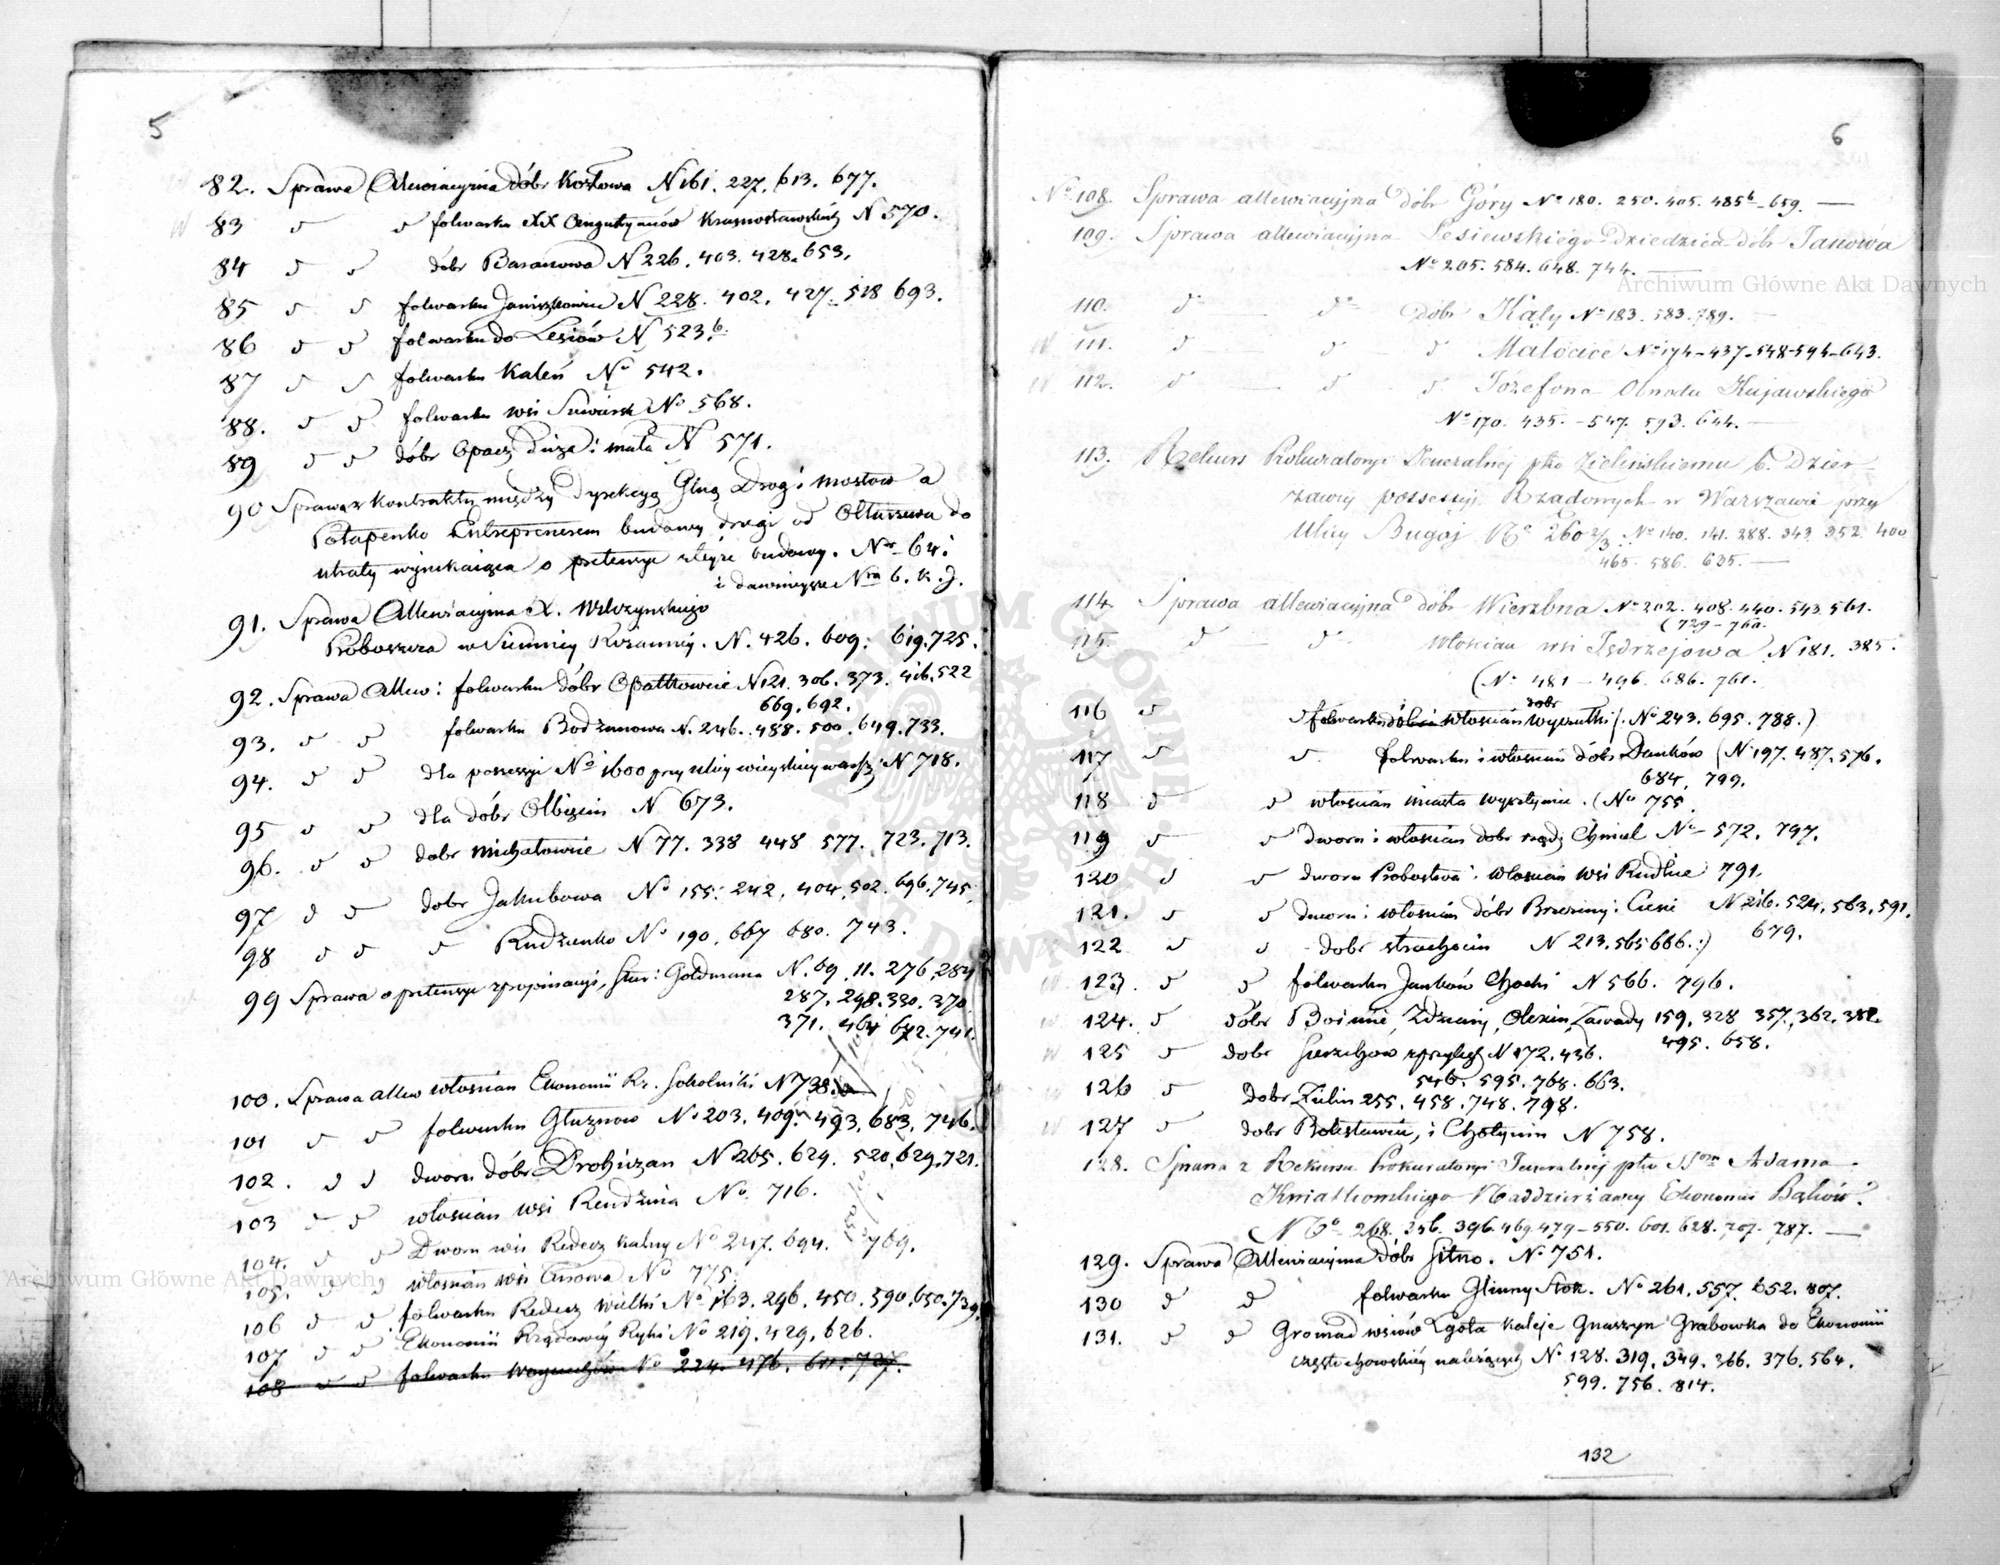 5
82. Sprawa Allewiacyjna dóbr Kozłowa N 161. 227. 613. 677.
83 d d folwarku XX Augustyanów Krasnostawskich N 570.
84 d d dóbr Baranowa N 226. 403. 428. 653.
85 d d folwarku Janiszkowice N 228. 402. 427. 518 693.
86 d d folwarku do Lesiów N 523 b.
87 d d folwarku Kaleń No 542.
88. d d folwarku wsi No 568.
89 d d dóbr Opacz Duża i mała N 571.
90 Sprawa z kontraktu między Dyrekcyą Głną Dróg i mostów a
Potapenko Entreprenerem budowy drogi od Ołtarzewa do
utraty wynikająca o pretensye z tejże budowy. Nr 64.
i dawniejsze Nra 6. K. J.
91. Sprawa Allewiacyjna X. Wilczyńskiego
Proboszcza w Siennicy Rożanney. N. 426. 609. 619. 725.
92. Sprawa Allew: folwarku dóbr Opatkowice N 121. 306. 373. 416. 522
669. 692.
93. d d folwarku Bodzanowa N. 246. 488. 500. 649. 733.
94. d d dla possesyi No 1600 przy ulicy wieyskiey N 718.
95 d d dla dóbr Olbięcin N 673.
96. d d dobr Michałowice N 77. 338 448 577. 723. 713.
97 d d dobr Jakubowa No 155. 242. 404. 502. 696. 745.
98 d d d Rudzienko No 190. 667 680. 743.
99 Sprawa o pretensye z propinacyi, Star: Goldmana N. 69. 11. 276. 284
287. 298. 330. 370
371. 464 642. 741.
100. Sprawa allew włościan Ekonomii Rz. Sokolniki N 738.
101 d d folwarku Głuznow No 203. 409. 493. 683. 746.
102. d d dworu dóbr Drohiczan N 265. 624. 520. 629. 721.
103 d d włościan wsi Rendzina No. 716.
104. d d Dworu wsi Redecz kalny No 247. 694. 769.
105. d d włościan wsi No 775.
106 d d folwarku Redecz wielki No 163. 296. 450. 590. 650. 739.
107 d d Ekonomii Rządowéy Ryki No 219. 429. 626.
108 d d folwarku No 224. 476. 611. 737.
6
No 108. Sprawa allewiacyjna dóbr Góry No 180. 250. 405. 485b. 659. —
109. Sprawa allewiacyjna Lesiewskiego dziedzica dóbr Janowa
No 205. 584. 648. 744. —
110. do — do dóbr Kąty No 183. 583. 789. —
111. d — d d Małocice No 174 - 437 - 548 - 594 - 643.
112. d — d d Józefona Obnodu Kujawskiego
No 170. 435. - 547. 593. 644. —
113. Rekurs Prokuratoryi Jeneralnéj pko Zielińskiemu b. Dzier-
żawcy possessyi Rządowych w Warszawie przy
Ulicy Bugaj No 260 2/3 No 140. 141. 288. 343. 352. 400
465. 586. 635. —
114. Sprawa allewiacyjna dóbr Wierzbna No 202. 408. 440. 543. 561.
(729 - 760.
115. d — d włościan wsi Jędrzejowa N 181. 385.
(No 481 - 496. 686. 761.
116 d d folwarku dóbr i włościan dobr Wyczułki (No 243. 695. 788.)
117 d d folwarku i włościan dóbr Danków (N 197. 487. 576.
684. 799.
118 d d włościan miasta (No 755.
119 d d dworu i włościan dobr rządz Chmiel No 572. 797.
120 d d dworu Probostwa i włościan wsi Rudlice 791.
121. d d dworu i włościan dóbr Brzeziny i Ciesie N 216. 524. 563. 591.
679.
122 d d dobr Strachocin N 213. 565 666.
123. d d folwarku Janków N 566. 796.
124. d dóbr Boimie, Zdżary, Olexin, Zawady 159. 328 357. 362. 382.
495. 658.
125 d dobr Sierzchow z przyległ N 172. 436.
546. 595. 768. 663.
126 d dobr Zulin 255. 458. 748. 798.
127 d dobr Bolesławiec, i Chotynin N 758.
128. Sprawa z Rekursu Prokuratoryi Jeneralnéj pko Adama
Kwiatkowskiego Naddzierżawcy Ekonomii Bąków
No 268. 256. 396. 469. 479 - 550. 601. 628. 707. 787. —
129. Sprawa Allewiacyjna dóbr Sitno. No 751.
130 d d folwarku Gliwny Stok. No 261. 557. 652. 807.
131. d d Gromad wsiów Lgota Kaleje Gnaszyn Grabowka do Ekonomii
częstochowskiéj należących No 128. 319. 349. 366. 376. 564.
599. 756. 814.
132
Archiwum Główne Akt Dawnych
Archiwum Główne Akt Dawnych
ARCHIWUM GŁÓWNE AKT DAWNYCH